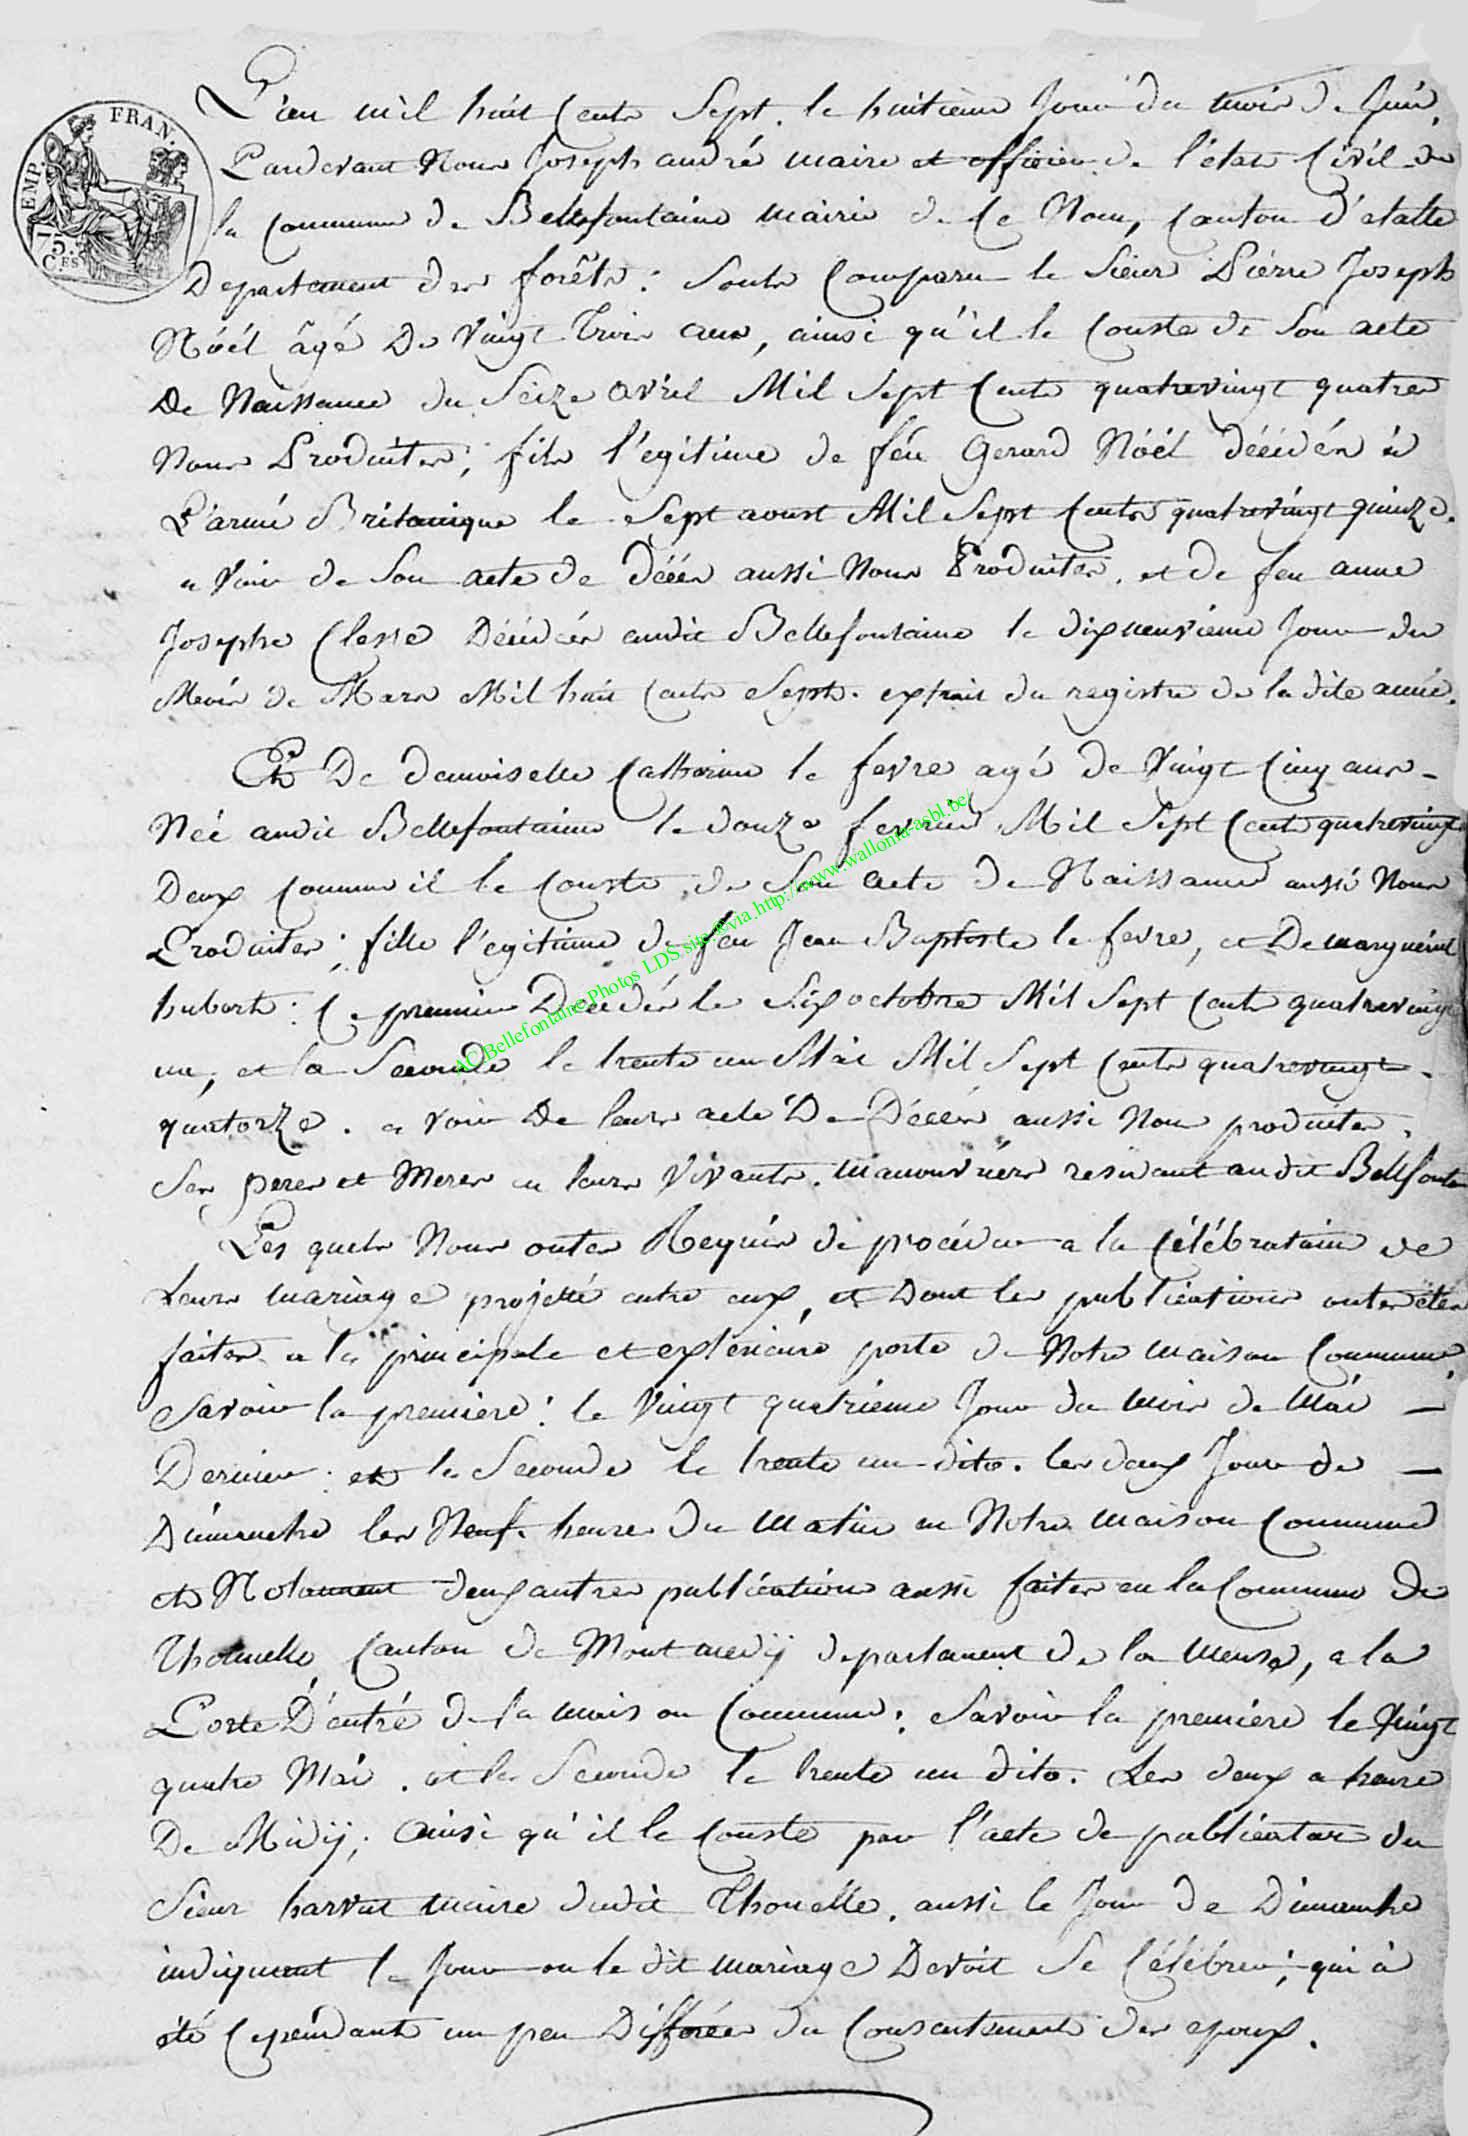 EMP. FRAN.
75. C.ES
L'an mil huit Cents Sept. le huitieme Jour du mois de Juin,
Pardevant Nous Joseph andré maire et officier de l'état Civil de
la Commune de Bellefontaine mairie de Ce Nom, Canton d'etalle
Departement des forêts : Sonts Comparu le Sieur Piérre Joseph
Nöél âgé De Vingt Trois ans, ainsi qu'il le Conste de Son acte
De Naissance du Seize avril Mil Sept Cents quatrevingt quatres
Nous Produites; fils l'égitime de féu Gerard Nöél décédés à
L'armé Britanique le Sept aoust Mil Sept Cents quatrevingt quinze.
a Voir de Son acte de décés aussi Nous Produites, et de feu anne
Josephe Clesse Décédés audit Bellefontaine le dixneuvieme Jour du
Mois de Mars Mil huit Cents Sept. extrait du registre de la dite année.
Et De demoiselle Catherine le fevre agé de Vingt Cinq ans -
Neé audit Bellefontaine le douze fevrier Mil Sept Cents quatrevingt
Deux Comme il le Conste, de Son acte de Naissance aussi Nous
Produites; fille l'egitime de feu Jean Baptiste le fevre, et De marguérite
huberts : Ce premier Décédés le Six octobre Mil Sept Cents quatrevingt
un, et la Seconde le trente un Mai Mil Sept Cents quatrevingt -
quatorze. a voir De leurs acte De Décés aussi Nous produites,
Ses peres et Meres en leurs Vivants. manouvriérs residant audit Bellefontaine
Les quels Nous ontes Requiérs de procéder a la Célébration de
Leurs mariage projetté entre eux, et Dont les publications ontes étés
faites a la principale et exterieure porte de Notre maison Commune,
Savoir la premiere : le Vingt quatriéme Jour du mois de Mai —
Dernier : et la Seconde le trente un dito. les deux Jour de —
Dimanche les Neuf. heures Du Matin en Notre maison Commune
et Notament deux autres publication aussi faites en la Commune De
Thonnelle, Canton de Montmedÿ departement de la Meuse, a la
Porte D'entré de la maison Commune : Savoir la premiere le Vingt
quatre Mai. et la Seconde le trente un dito. Les deux a heure
De Midÿ; ainsi qu'il le Conste par l'acte de publication du
Sieur harvat maire dudit Thonelle. aussi le Jour de Dimanche
indiquant le Jour ou le dit mariage Devoit Se Célébrer; qui à
été Cependants un peu Differées du Consentement des epoux.
AC Bellefontaine Photos LDS site & via http://www.wallonia-asbl.be/